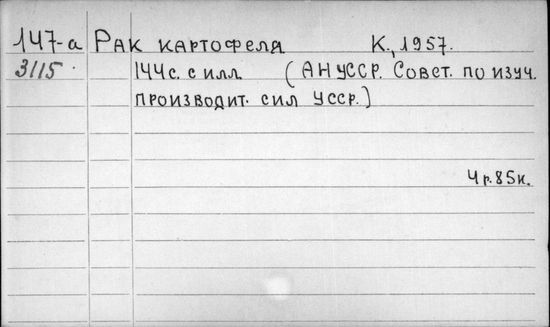 147-а РАК КАРТОФЕЛЯ К., 1957.
3115 144 с. с илл. (АН УССР. СОВЕТ. ПО ИЗУЧ.
ПРОИЗВОДИТ. СИЛ УССР.)
4 р. 85 к.